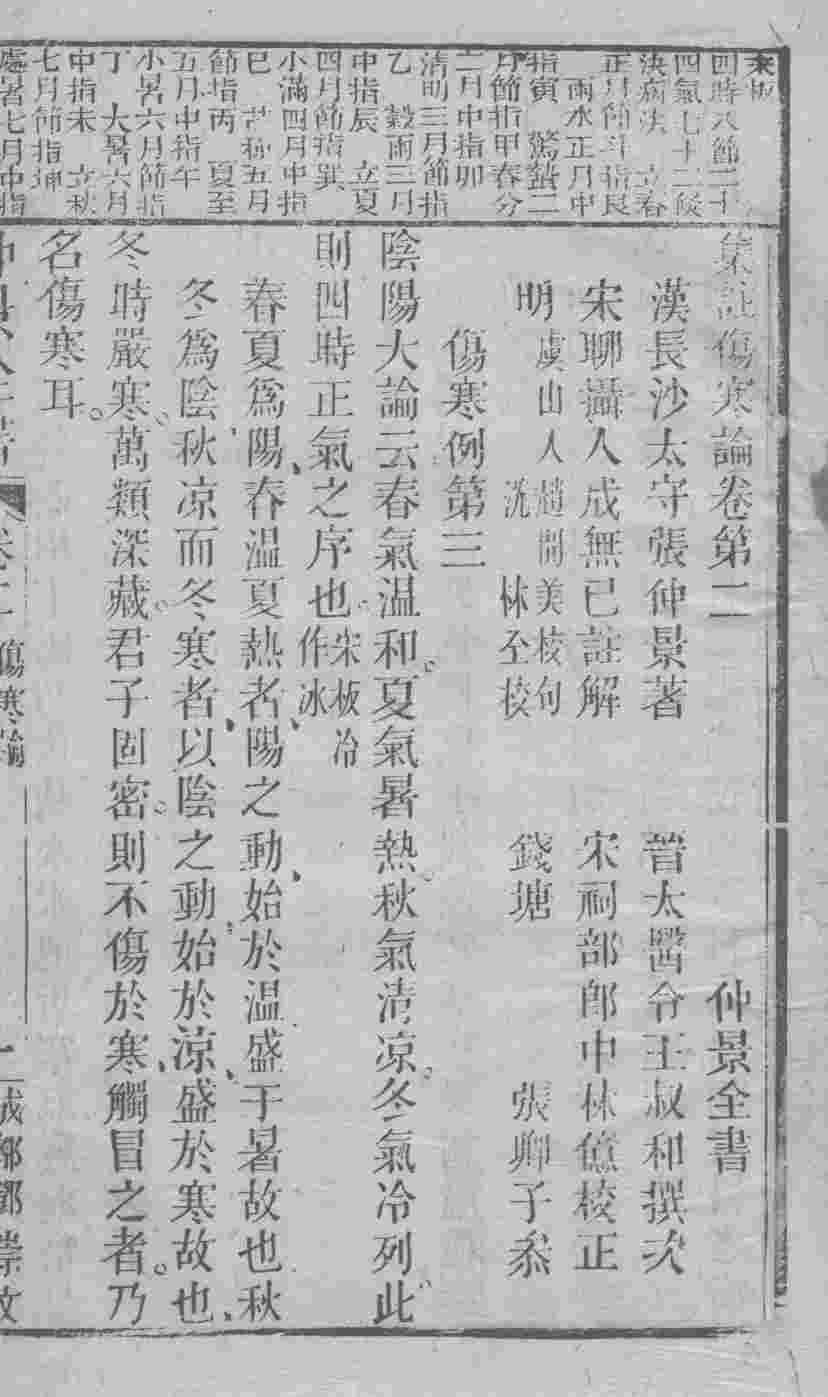 宋板
四時八節二十
四氣七十二候
決病法　立春
正月節斗指艮
雨水正月中
指寅　驚蟄二
月節指甲春分
二月中指卯
清明三月節指
乙　穀雨三月
中指辰　立夏
四月節指巽
小滿四月中指
巳　芒種五月
節指丙　夏至
五月中指午
小暑六月節指
丁　大暑六月
中指未　立秋
七月節指坤
處暑七月中指
集註傷寒論卷第二　仲景全書
漢長沙太守張仲景著　晉太醫令王叔和撰次
宋聊攝人成無已註解　宋祠部郎中林億校正
明　虞山人趙開美校句
沈　林㒶校　錢塘　張卿子叅
傷寒例第三
陰陽大論云春氣温和。夏氣暑熱。秋氣清凉。冬氣冷列。此
則四時正氣之序也。宋板冷
作冰
春夏爲陽、春温夏熱者、陽之動、始於温盛于暑故也秋
冬爲陰、秋凉而冬寒者、以陰之動、始於涼、盛於寒故也、
冬時嚴寒。萬類深藏。君子固密。則不傷於寒、觸冒之者。乃
名傷寒耳。
仲景全書　卷二　傷寒論　一　成都鄧崇文